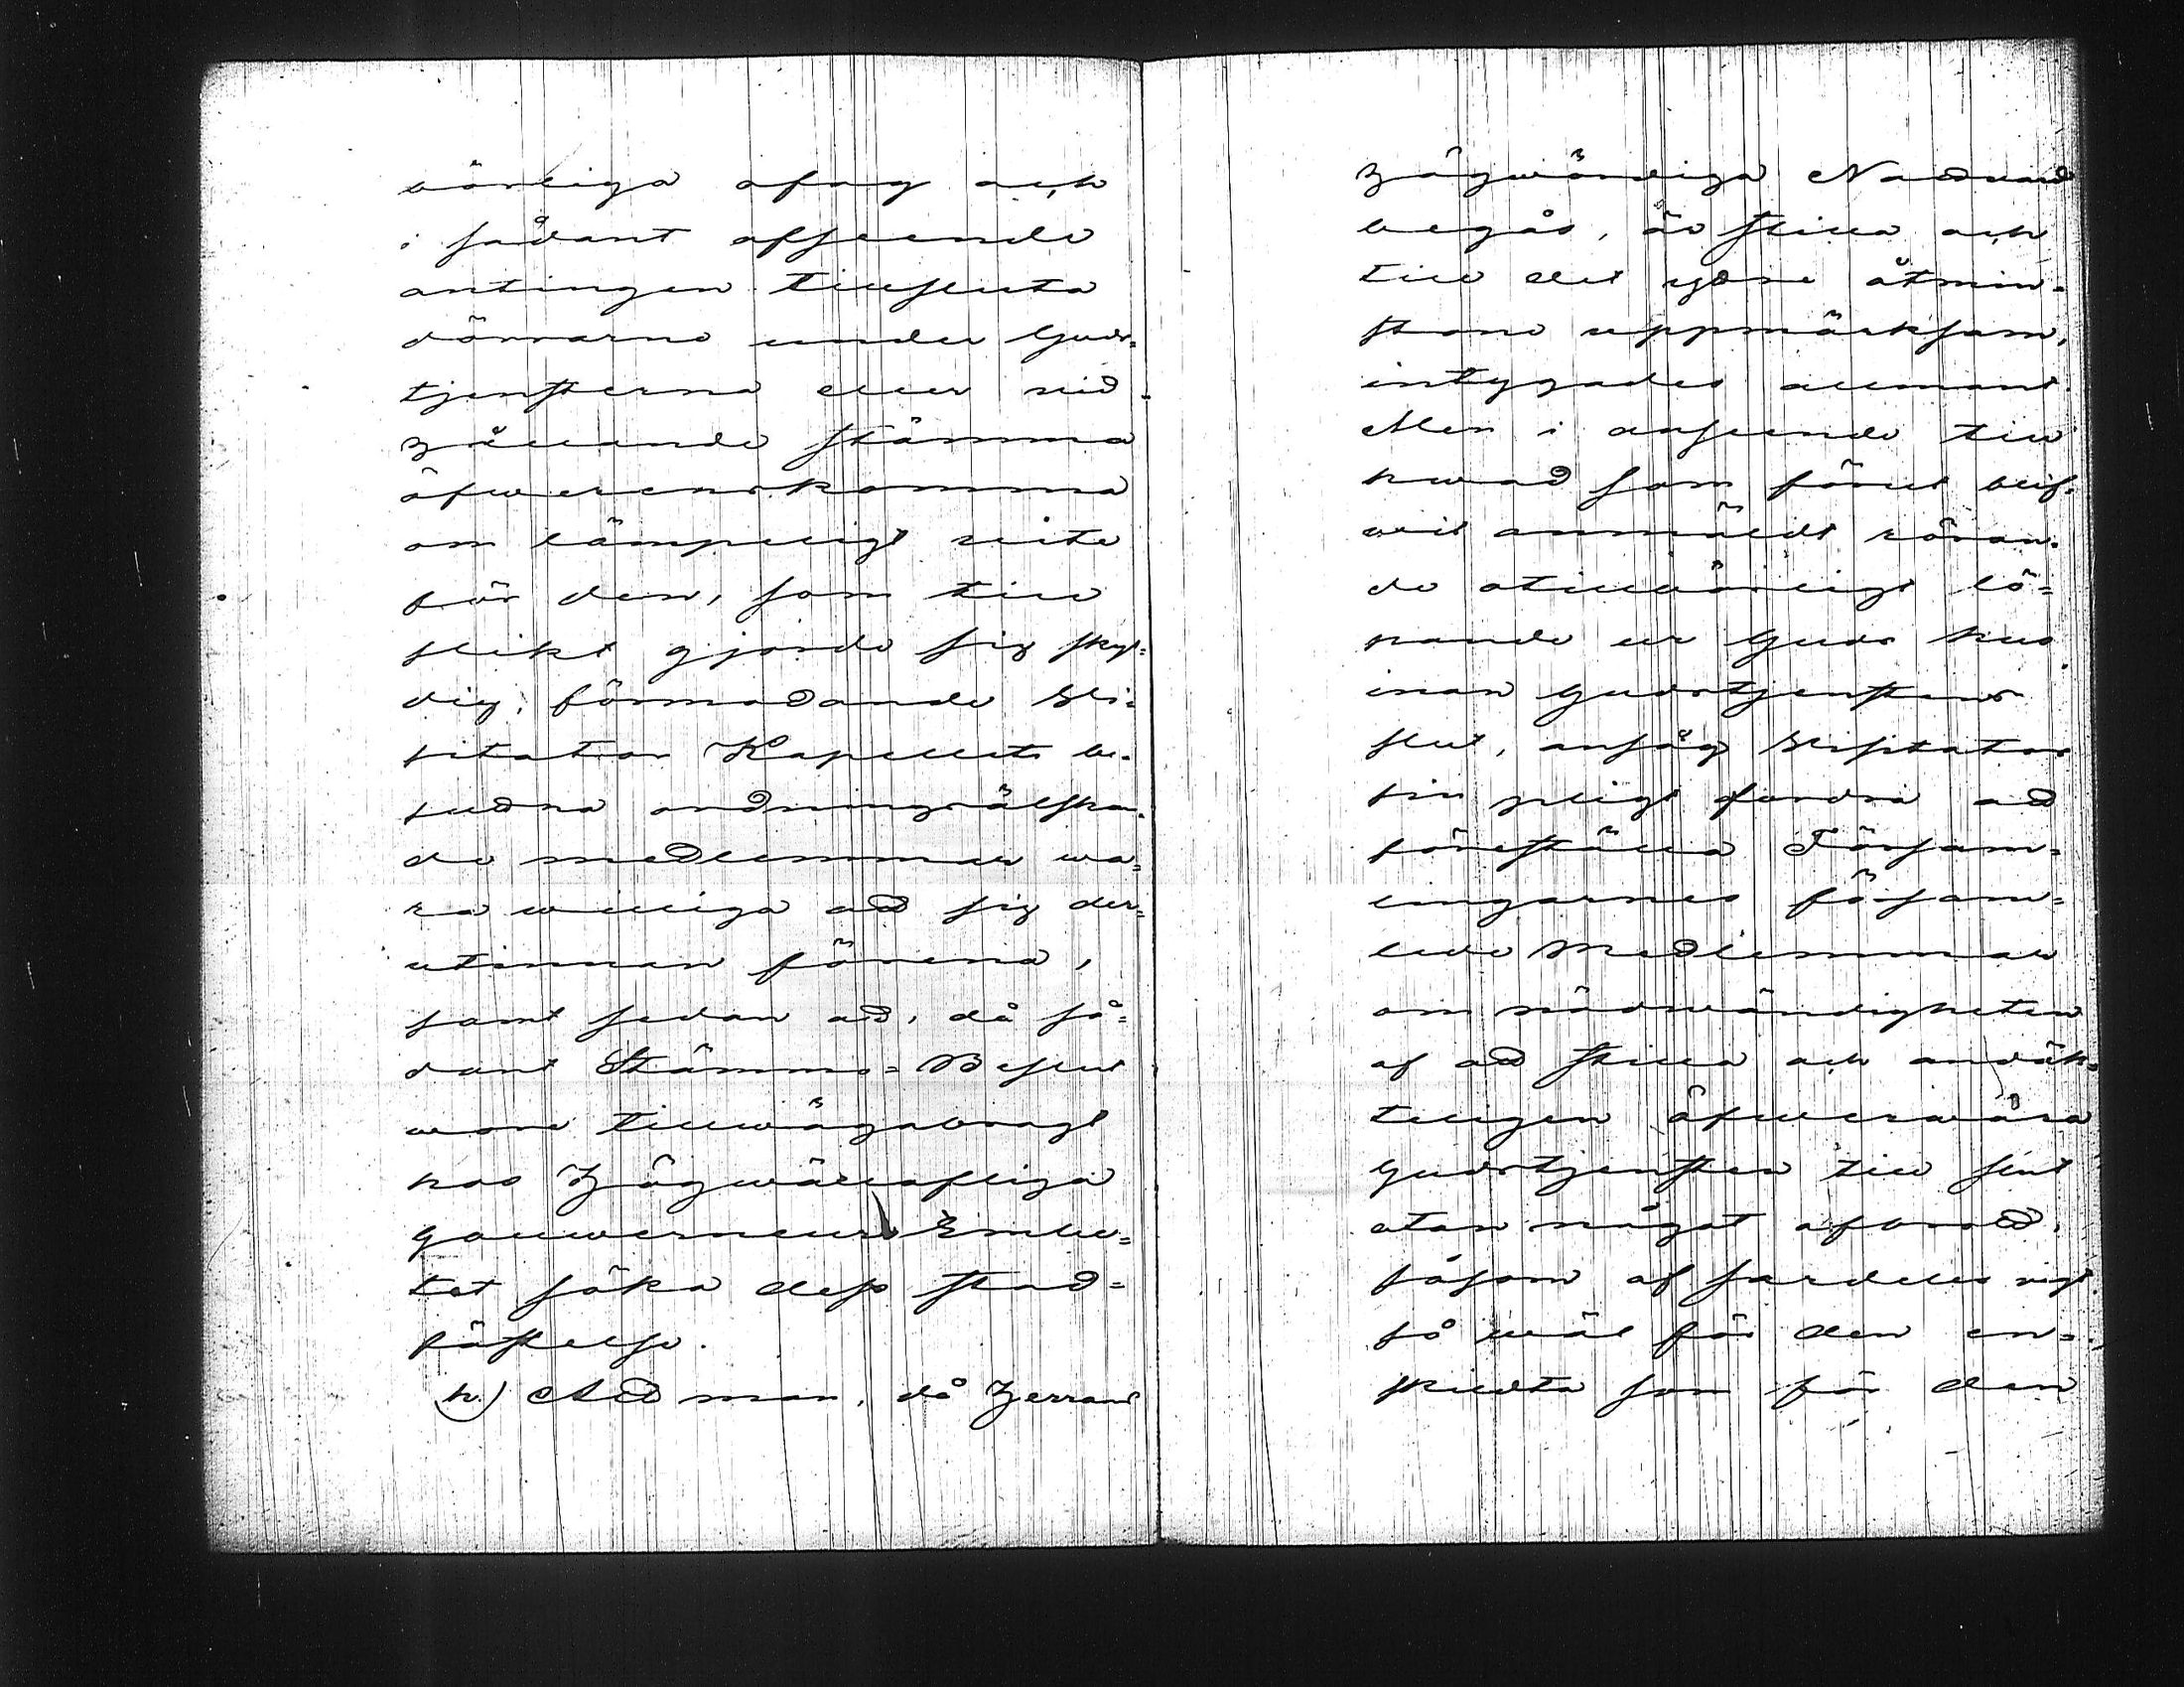 börliga ofog och
i sådant afseende
antingen tillsluta
dörrarne under Guds=
tjensterna eller wid
hållande stämma
öfwerenskomma
om lämpeligt wite
för den, som till
slikt gjorde sig skyl=
dig; förmodande Wi=
sitator Kapellets be=
sutna ordningsälskan=
de medlemmar wa=
ra williga att sig der=
utinnan förena,
samt sedan att, då så=
dant Stämmo=Beslut
wore tillwägabragt
hos Högwälloflige
Gouwerneurs Embe=
tet söka dess stad=
fästelse.
h.) Att man, då Herrans
Högwördiga Nattward
begås, är stilla och
till det yttre åtmin=
stone uppmärksam,
intygades allmänt.
Men i anseende till
hwad som förut blif=
wit anmäldt röran=
de otillbörligt lö=
pande ur Guds hus
innan Gudstjenstens
slut, ansåg Wisitator
sin pligt fordra att
föreställa Försam=
lingarnes försam=
lede Medlemmar
om nödwändigheten
af att stilla och andäk=
teligen öfwerwara
Gudstjensten till slut
utan något afbrott,
såsom af särdeles wigt
så wäl för den en=
skildta som för den